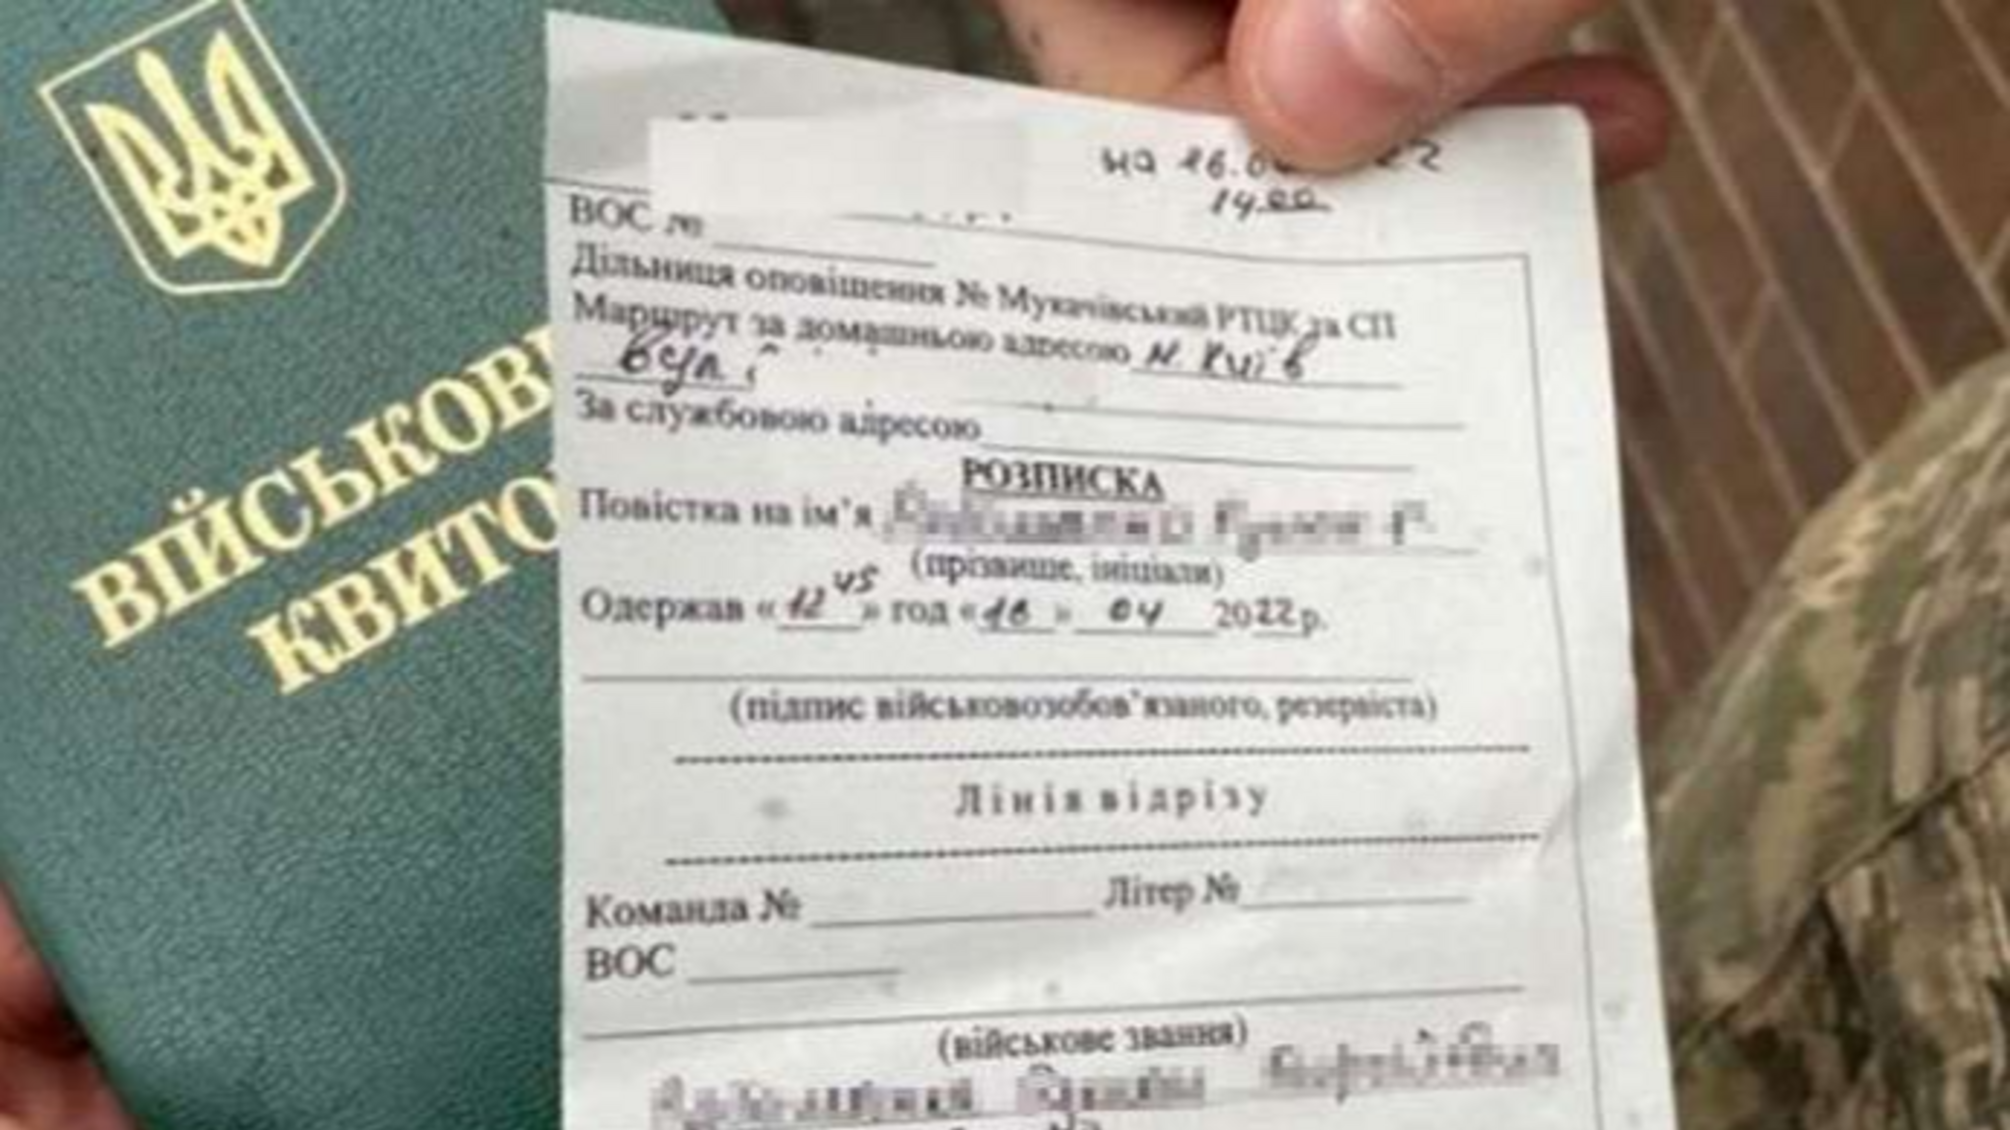 ВІЙСЬКОВ
КВИТО
на 16.0 22
14.00
ВОС №
Дільниця оповіщення № Мукачівський РТЦК та СП
Маршрут за домашньою адресою м. Київ
вул
За службовою адресою
РОЗПИСКА
Повістка на ім’я
(прізвище, ініціали)
Одержав «12 45» год «16» 04 2022 р.
(підпис військовозобов’язаного, резервіста)
Лінія відрізу
Команда № Літер №
ВОС
(військове звання)